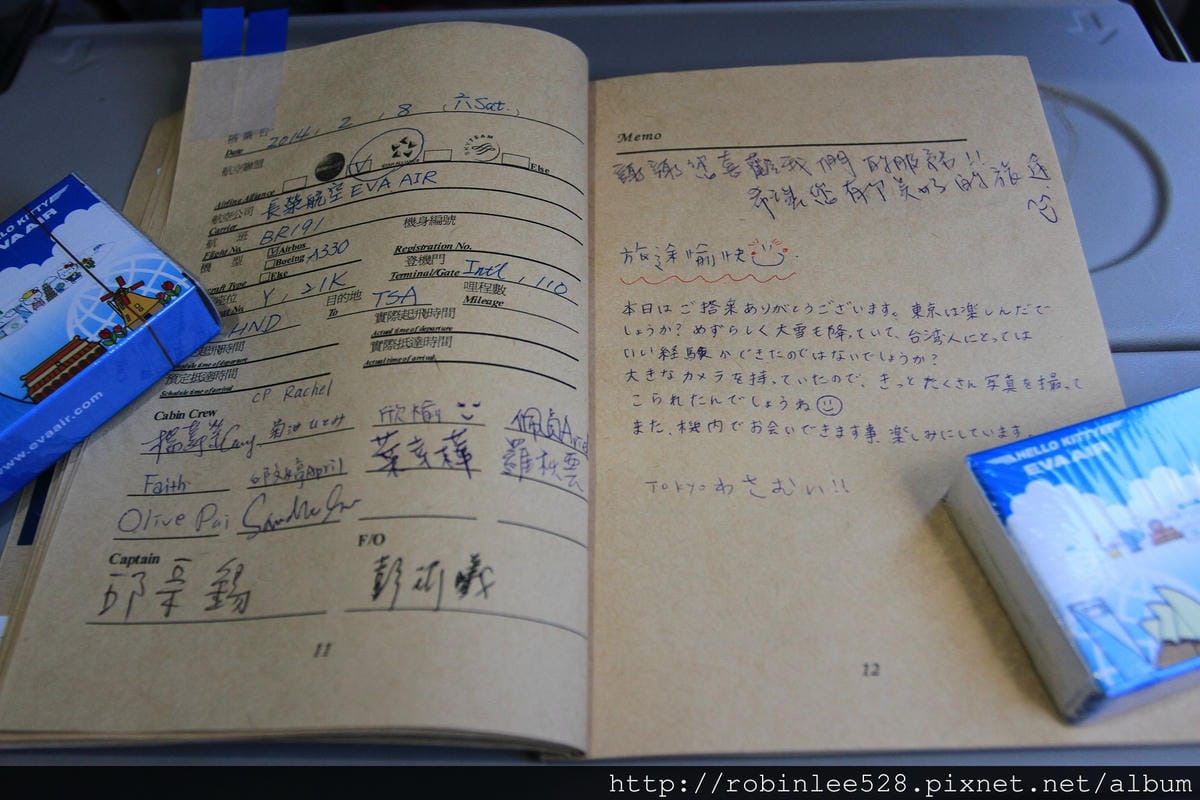 搭乘日
Date 2014. 2. 8 (六Sat.)
航空聯盟
Airline Alliance STAR ALLIANCE SKYTEAM Else
航空公司
Carrier 長榮航空 EVA AIR
航 班 機身編號
Flight No. BR191 Registration No.
機 型 Airbus A330
Boeing
Else
登機門
Terminal/Gate Intl, 110
座位 Y, 21K 目的地 TSA
To
哩程數
Mileage
HND
實際起飛時間
Actual time of departure
實際抵達時間
Actual time of arrival
起飛時間
Schedule time of departure
預定抵達時間
Schedule time of arrival
CP Rachel
Cabin Crew
菊池ひとみ
Faith
April
葉
羅
Olive Pai
Captain
邱 錫
F/O
彭
11
Memo
謝謝您喜歡我們的服務!!
希望您有個美好的旅途
旅途愉快
本日はご搭乗ありがとうございます。東京は楽しんだで
しょうか? めずらしく大雪も降っていて、台湾人にとっては
いい経験ができたのではないでしょうか?
大きなカメラを持っていたので、きっとたくさん写真を撮って
こられたんでしょうね
また、機内でお会いできます事、楽しみにしています
Tokyoわさむい!!
12
HELLO KITTY
EVA AIR
www.evaair.com
HELLO KITTY
EVA AIR
http://robinlee528.pixnet.net/album